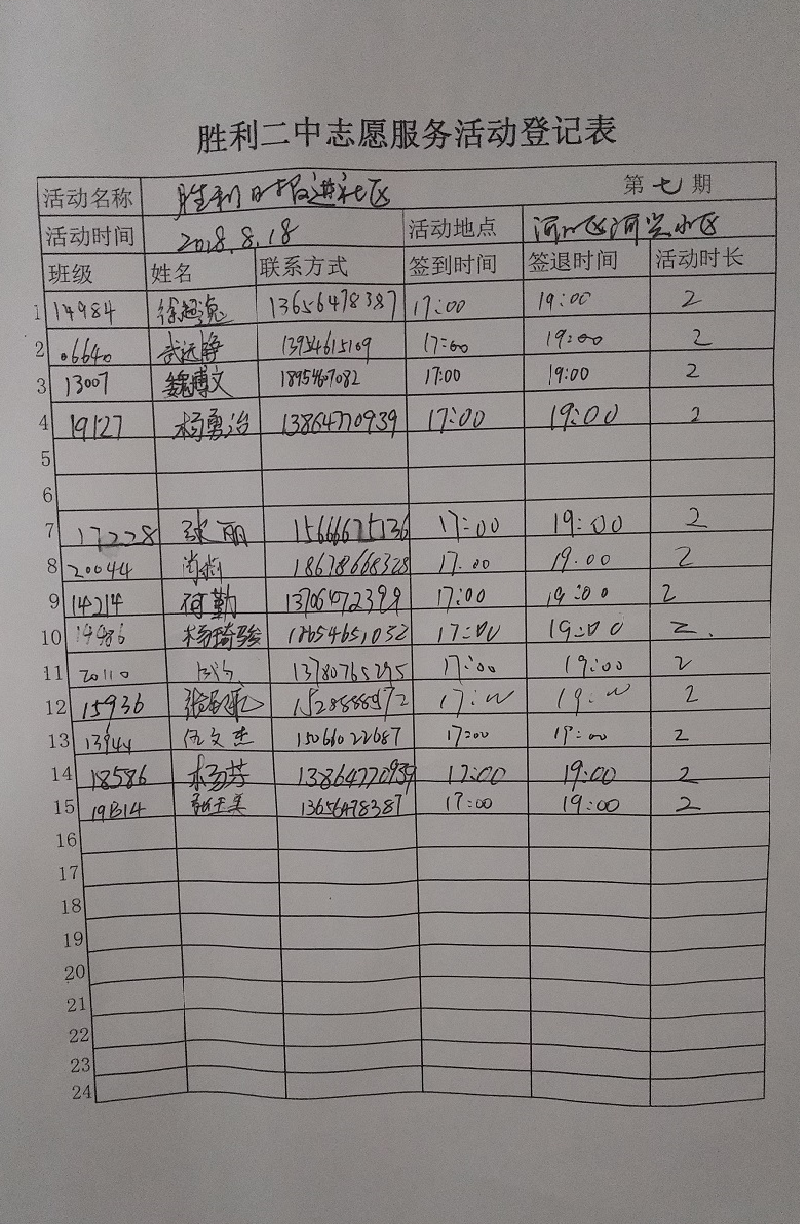 胜利二中志愿服务活动登记表
活动名称 胜利时报进社区 第七期
活动时间 2018.8.18 活动地点 河口区河兴小区
班级 姓名 联系方式 签到时间 签退时间 活动时长
1 14984 13656478387 17:00 19:00 2
2 06640 武远铮 13954615109 17:00 19:00 2
3 13007 魏博文 18954607082 17:00 19:00 2
4 19127 杨勇治 13864770939 17:00 19:00 2
5
6
7 17228 张丽 15666625136 17:00 19:00 2
8 20044 18678668328 17:00 19:00 2
9 14214 何勤 13706472399 17:00 19:00 2
10 14986 杨琦骏 17:00 19:00 2.
11 20110 13780765295 17:00 19:00 2
12 15936 17:00 19:00 2
13 13944 伍文杰 15066022687 17:00 19:00 2
14 18586 杨芳 13864770939 17:00 19:00 2
15 19B14 13656478387 17:00 19:00 2
16
17
18
19
20
21
22
23
24